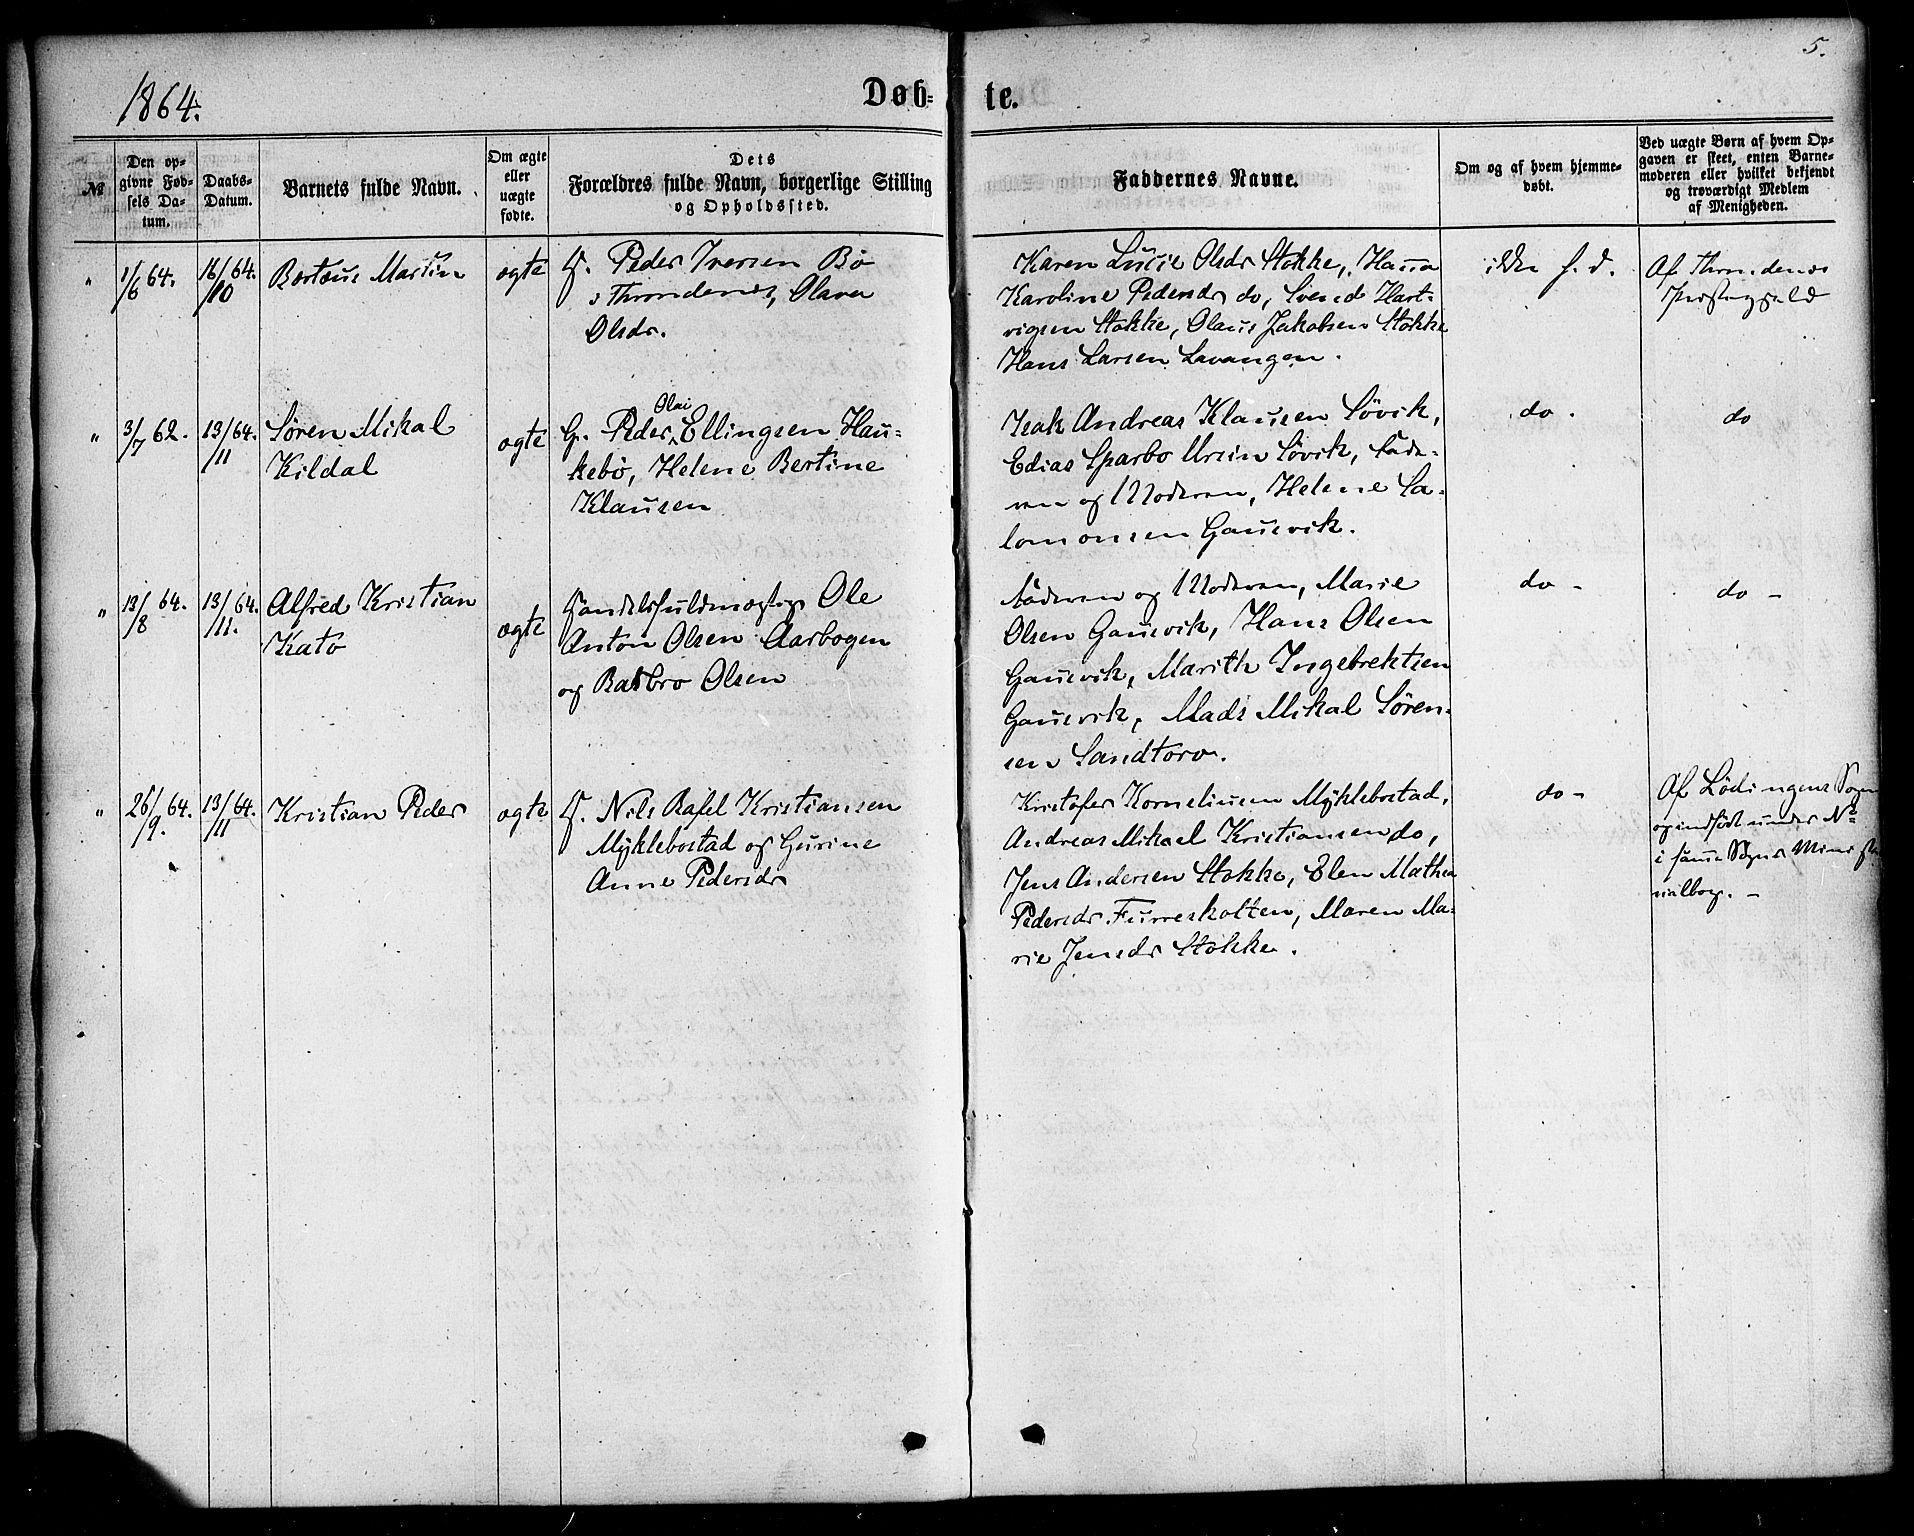 5.
1864.
Døb= te.
№
Den op=
givne Fød=
sels Da=
tum.
Daabs=
Datum.
Barnets fulde Navn.
Om ægte
eller
uægte
fødte.
Dets
Forældres fulde Navn, borgerlige Stilling
og Opholdssted.
Faddernes Navne.
Om og af hvem hjemme=
døbt.
Ved uægte Børn af hvem Op=
gaven er skeet, enten Barne=
moderen eller hvilket bekjendt
og troværdigt Medlem
af Menigheden.
" 1/6 64. 16/10 64. Bertæus Martin ægte
F. Peder Iversen Bø
i Throndenes, Olava
Olsdr.
Karen Lucie Olsdr Stokke, Hanna
Karoline Pedersdr do, Svend Hart-
vigsen Stokke, Olaus Jakobsen Stokke
Hans Larsen Lavangen.
ikke h. d.
Af Throndenes
Præstegjeld
" 3/7 62. 13/11 64. Søren Mikal
Kildal
ægte
G. Peder Olai Ellingsen Hau-
kebø, Helene Bertine
Klausen
Isak Andreas Klausen Søvik,
Edias Sparbo Ursin Søvik, Fade-
ren og Moderen, Helene Sa-
lomonsen Gausvik.
do.
do
" 13/8 64. 13/11 64. Alfred Kristian
Kato
ægte
Handelsfuldmægtig Ole
Anton Olsen Aarbogen
og Barbro Olsen
Faderen og Moderen, Marie
Olsen Gausvik, Hans Olsen
Gausvik, Marith Ingebrektsen
Gausvik, Mads Mikal Søren-
sen Sandtorv.
do -
do -
" 26/9 64. 13/11 64. Kristian Peder ægte
F. Nils Rafel Kristiansen
Myklebostad og Gurine
Anne Pedersdr
Kristofer Korneliusen Myklebostad,
Andreas Mikael Kristiansen do,
Jens Andersen Stokke, Elen Mathea
Pedersdr Furreskolten, Maren Ma-
rie Jensdr Stokke.
do -
Af Lødingens Sogn
og indført under No
i samme Sogns Mini
rialbog. -